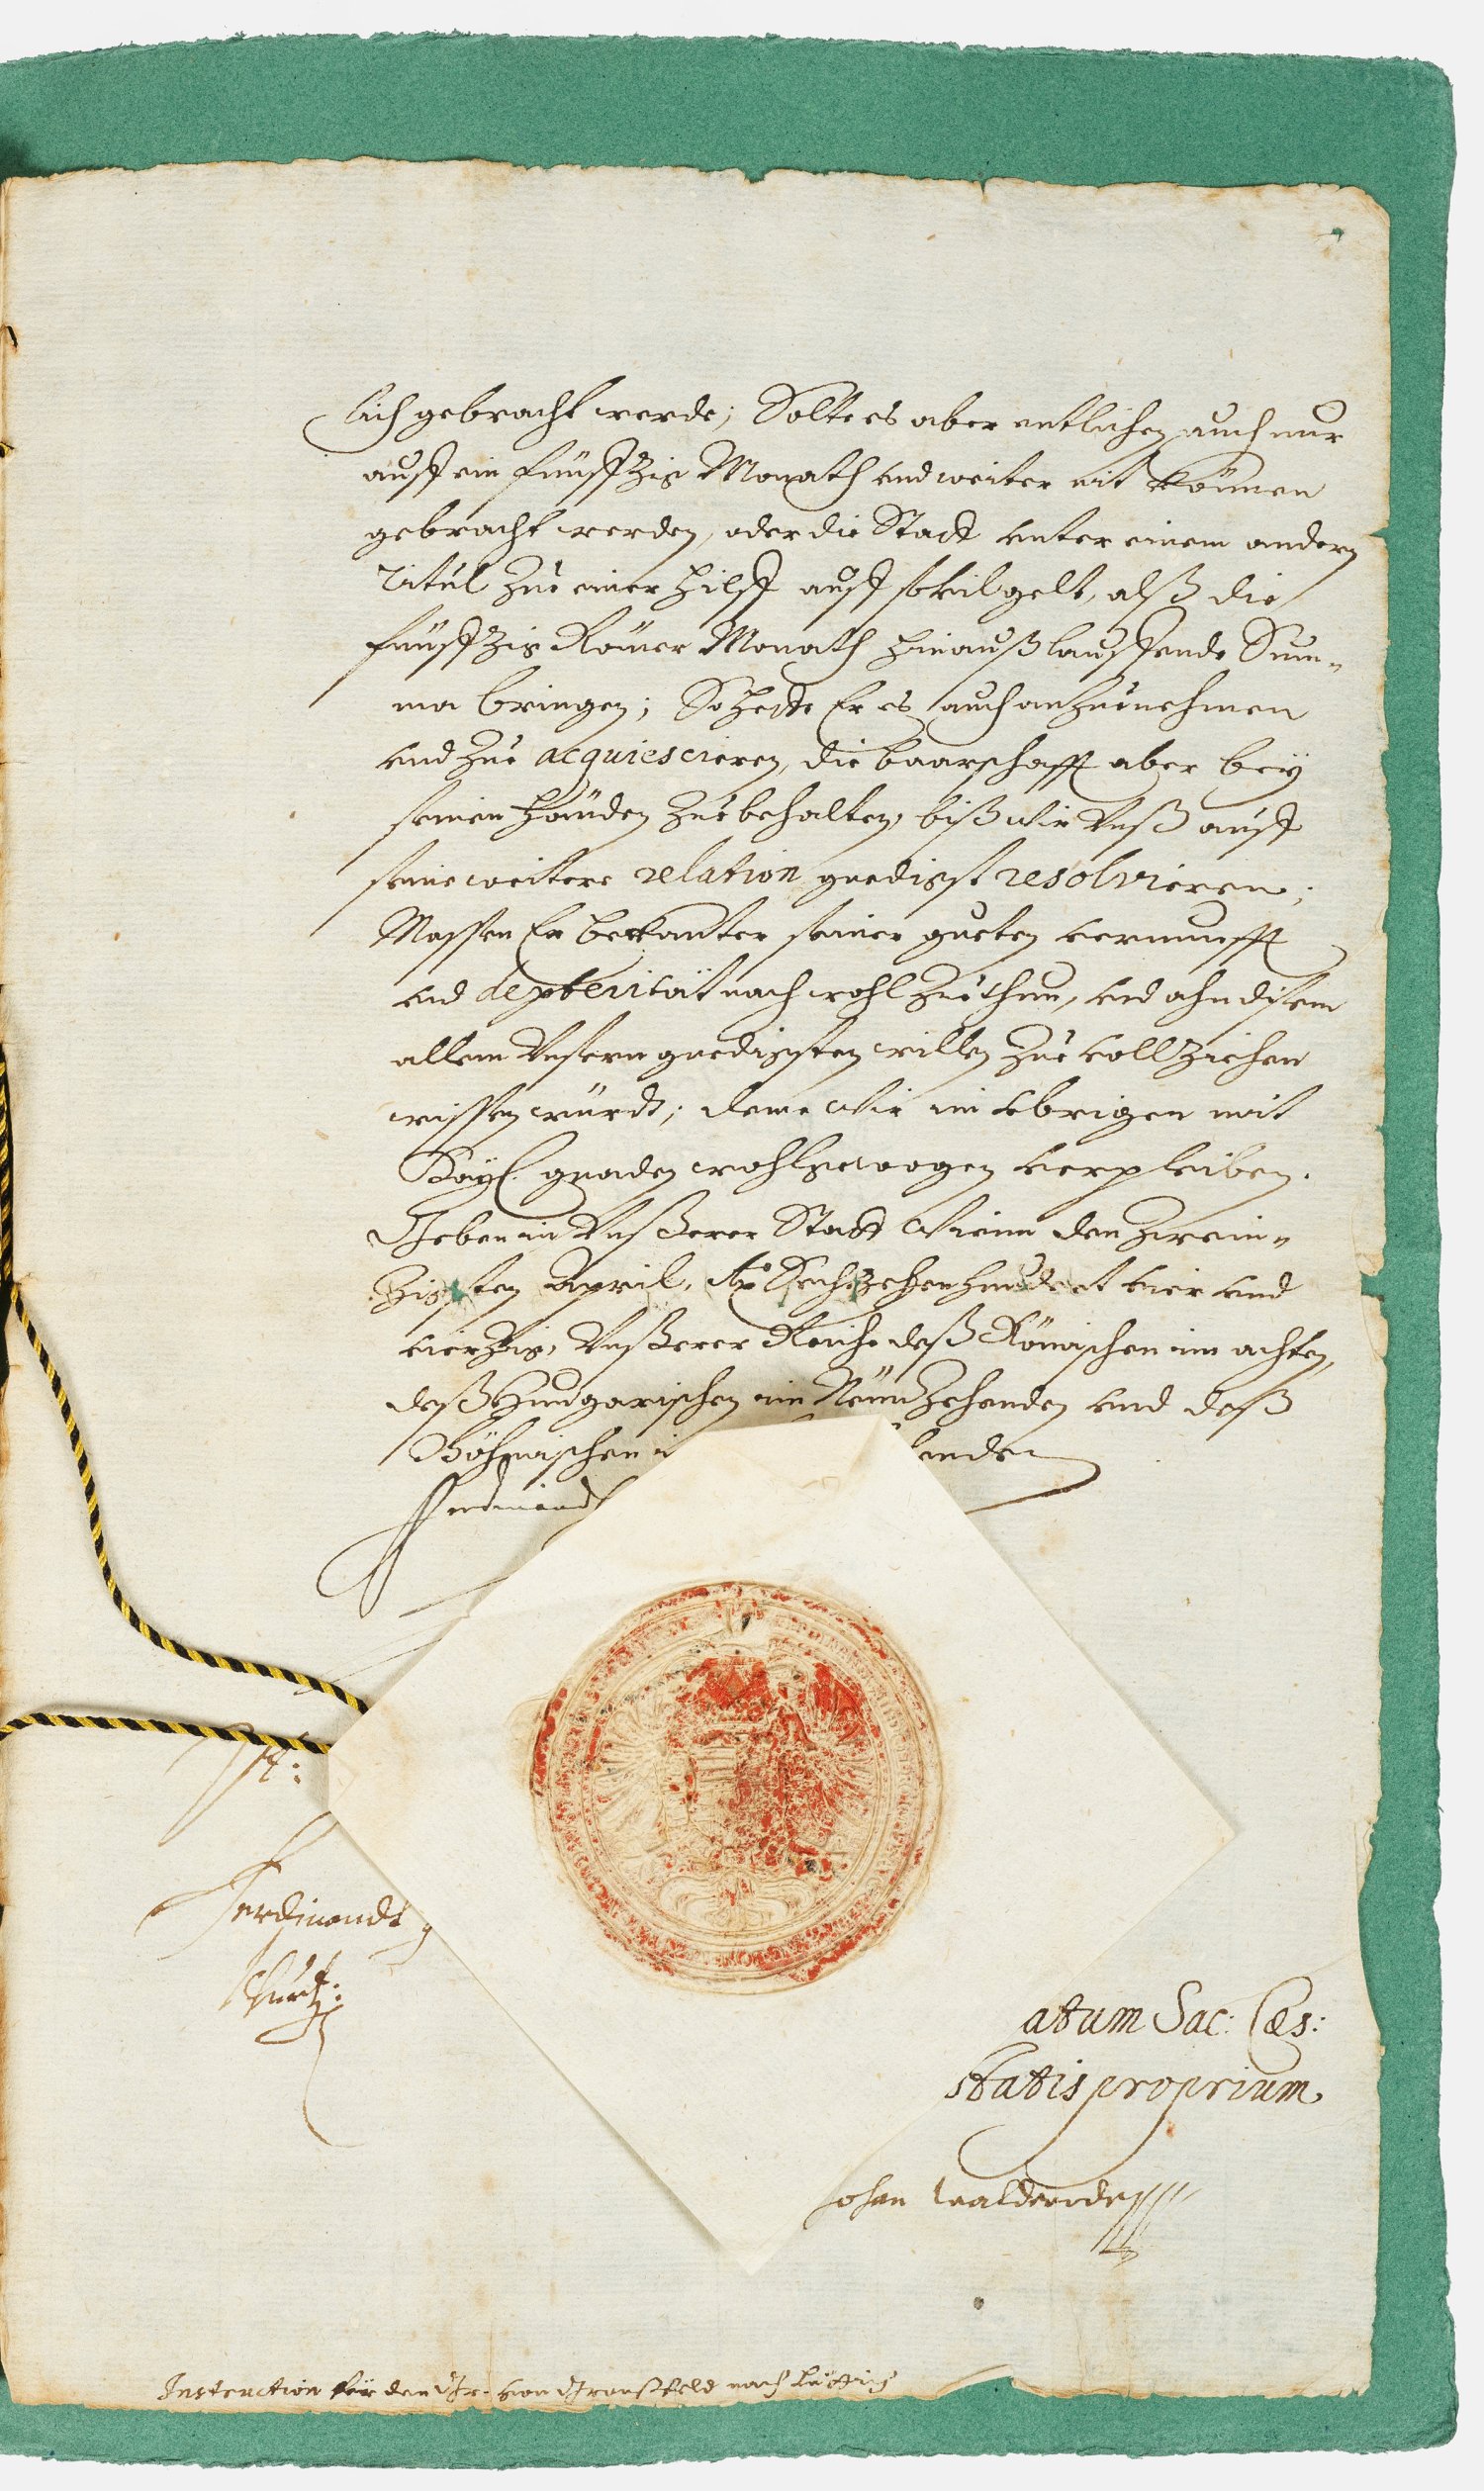 lich gebracht werde; Solte es aber entlichen auch nur
auff ein fünffzig Monath vnd weiter nit können
gebracht werden, oder die Statt vnter einem andern
Titul zue einer hilff auff sovil gelt, alß die
fünffzig Römer Monath hinauß lauffende Sum„
ma bringen; So hette Er es auch anzuenehmen
vnd zue acquiescieren, die baarschafft aber bey
seinen handen zue behalten, biß Wir Vnß auff
seine weitere relation gnedigst resolvieren;
Massen Er bekanter seiner gueten vernunfft
vnd dexterität nach wohl zue thun, vnd ahn disem
allem Vnsern gnedigsten willen zue vollziehen
wissen würdt; deme Wir im vbrigen mit
Kayl. gnaden wohlgewogen verpleiben.
Geben in Vnserer Statt Wienn den zwein„
zigsten April, Ao Sechzehenhundert vier vnd
vierzig, Vnserer Reiche deß Römischen im achten,
deß Hungarischen im Neünzehenden vnd deß
Böhmischen i henden
Ferdinandt
Vt:
Ferdinandt
Kurtz:
atum Sac: Cæs:
statis proprium
Johan Walderode
Instruction für den Gr. von Gronsfeld nach Lüttig